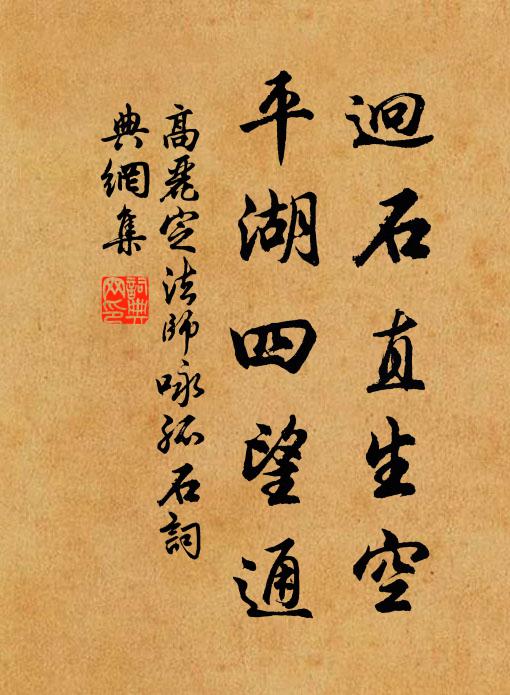 迥石直生空
平湖四望通
高麗定法師咏孤石詞
典網集
詞典
网印